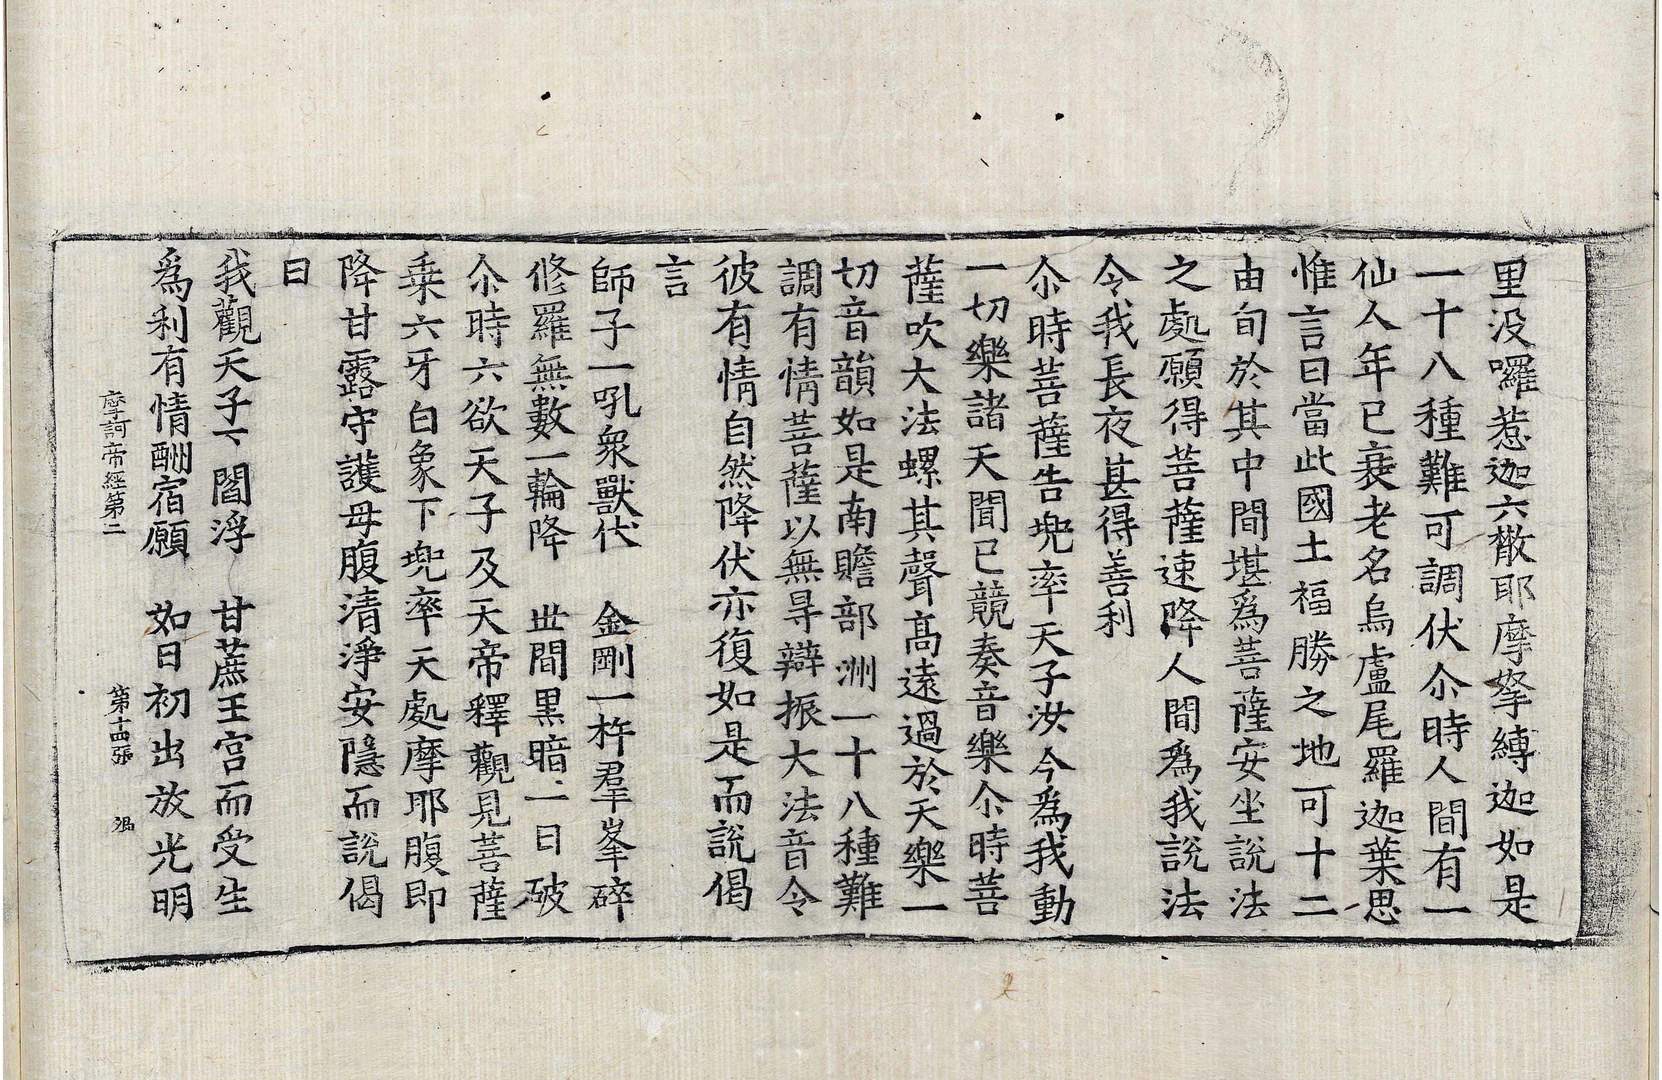 里没囉惹迦六㪚耶摩拏縛迦如是
一十八種難可調伏尒時人間有一
仙人年已衰老名烏盧尾羅迦葉思
惟言曰當此國土福勝之地可十二
由旬於其中間堪爲菩薩安坐說法
之處願得菩薩速降人間爲我說法
令我長夜甚得善利
尒時菩薩告兜率天子汝今爲我動
一切樂諸天聞已競奏音樂尒時菩
薩吹大法螺其聲高遠過於天樂一
切音韻如是南贍部洲一十八種難
調有情菩薩以無㝵辯振大法音令
彼有情自然降伏亦復如是而說偈
言
師子一吼衆獸伏　金剛一杵羣峯碎
修羅無數一輪降　世間黑暗一日破
尒時六欲天子及天帝釋觀見菩薩
乘六牙白象下兜率天處摩耶腹即
降甘露守護母腹清淨安隱而說偈
曰
我觀天子下閻浮　甘蔗王宮而受生
爲利有情酬宿願　如日初出放光明
摩訶帝經第二　第十四張